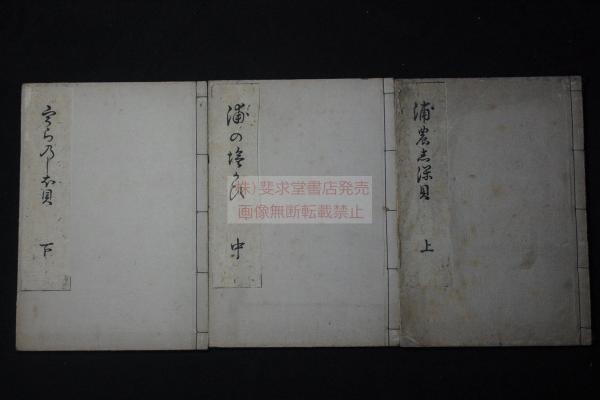 浦農志保貝 上
浦の塩かひ 中
宇らのしほ貝 下
(株)斐求堂書店発売
画像無断転載禁止